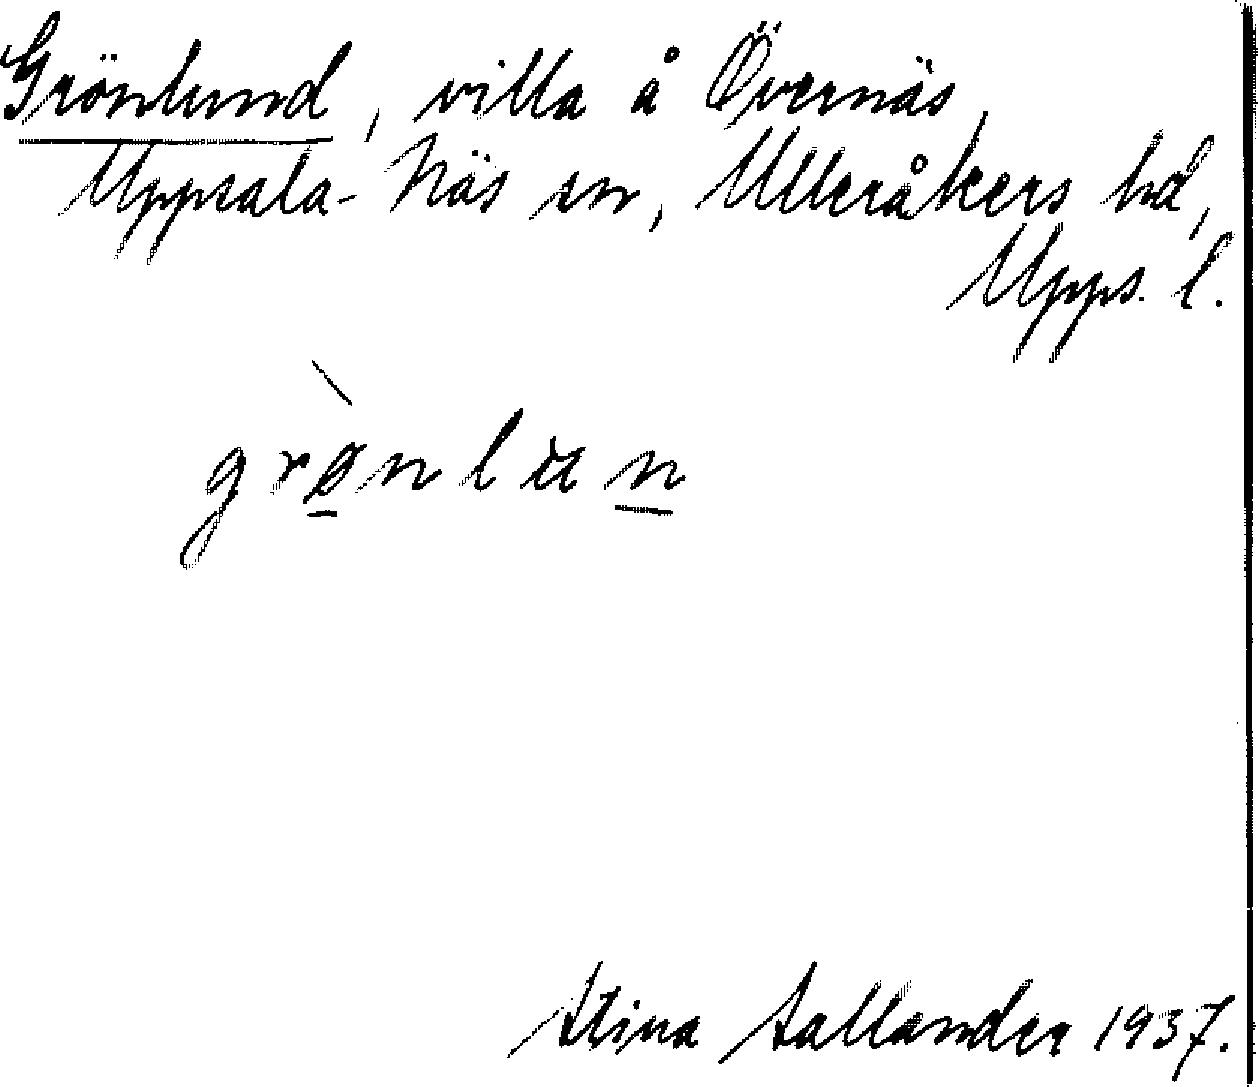 Grönlund, villa å Övernäs,
Uppsala-Näs sn, Ulleråkers hd,
Upps. l.
grø̀nlun
Stina Sallander 1937.